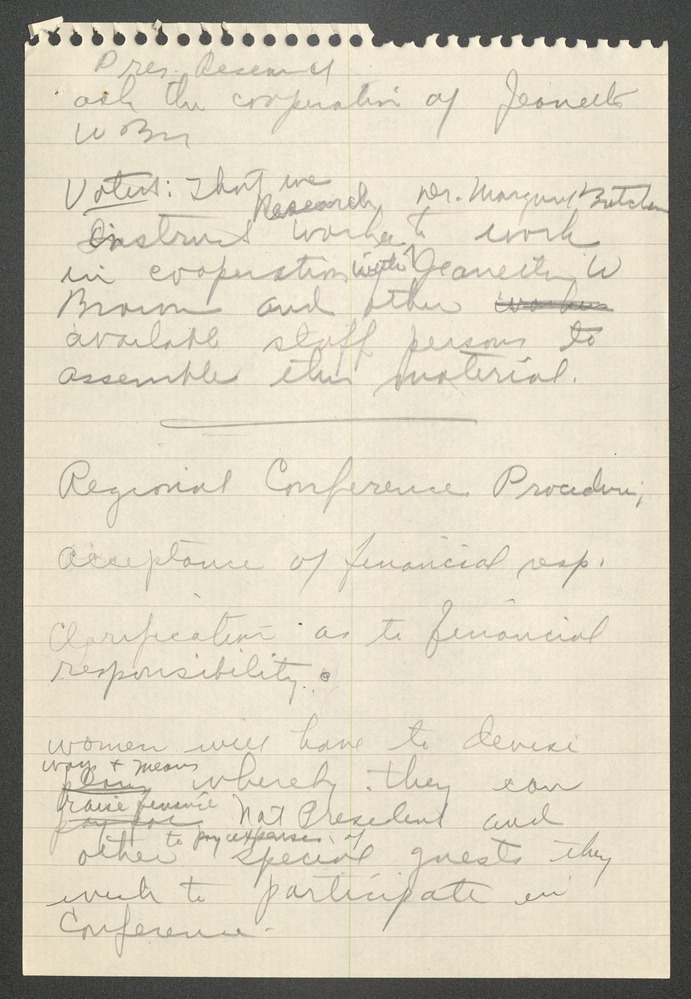 Pres.
ask the cooperation of Jeanette
W Brn
Voters: That we
Research Dr. Margaret Butcher
instruct worker to work
in cooperation with Jeanette W
Brown and other workers
available staff persons to
assemble this material.
Regional Conference Procedure;
acceptance of financial resp.
Clarification as to financial
responsibility.
women will have to devise
ways + means
plans whereby they can
raise finance
pay for Nat President and
to pay expenses of
other special guests they
wish to participate in
Conference.